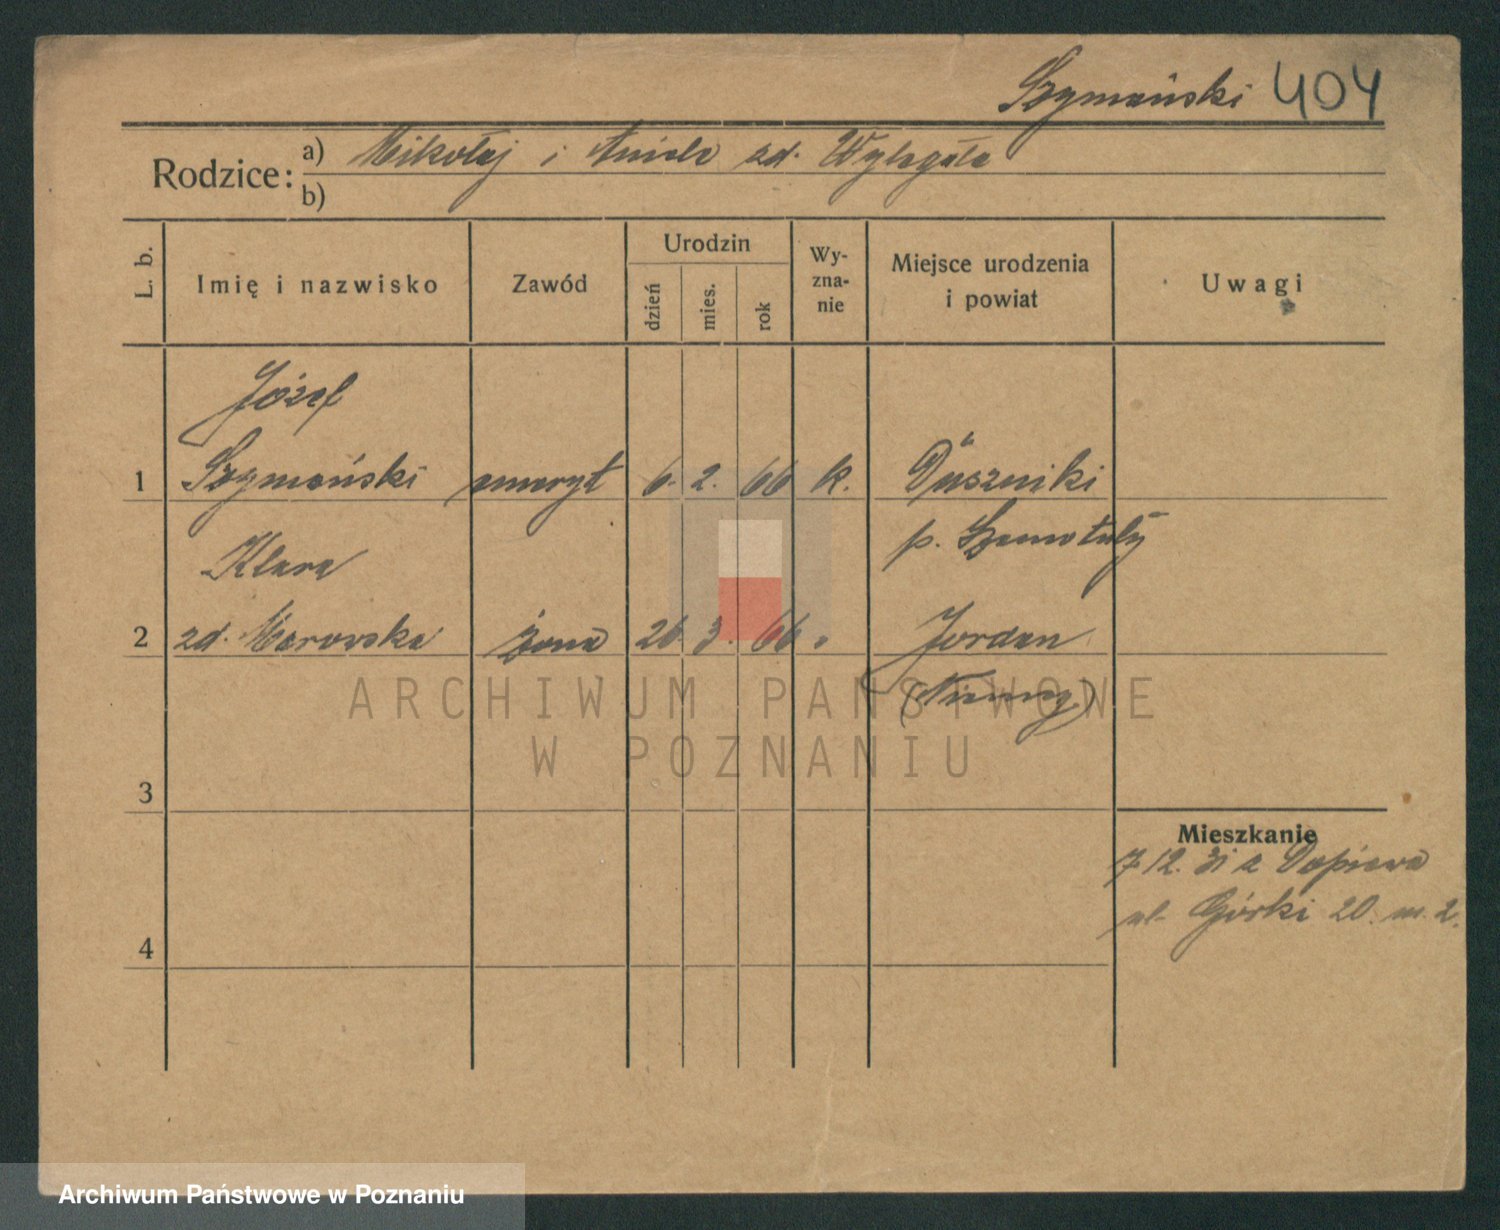 Szymański 404
Rodzice: a) Mikołaj i Aniela zd. Wylegała
b)
L. b.
Imię i nazwisko
Zawód
Urodzin
dzień
mies.
rok
Wy-
zna-
nie
Miejsce urodzenia
i powiat
Uwagi
Józef
1 Szymański emeryt 6. 2. 66 k. Duszniki
p. Szamotuły
Klara
2 zd. Morowska żona 26. 3. 66 " Jordan
(Niemcy)
ARCHIWUM PAŃSTWOWE
W POZNANIU
3
Mieszkanie
7 12. 31 z Dopiewa
ul. Górki 20. m. 2.
4
Archiwum Państwowe w Poznaniu